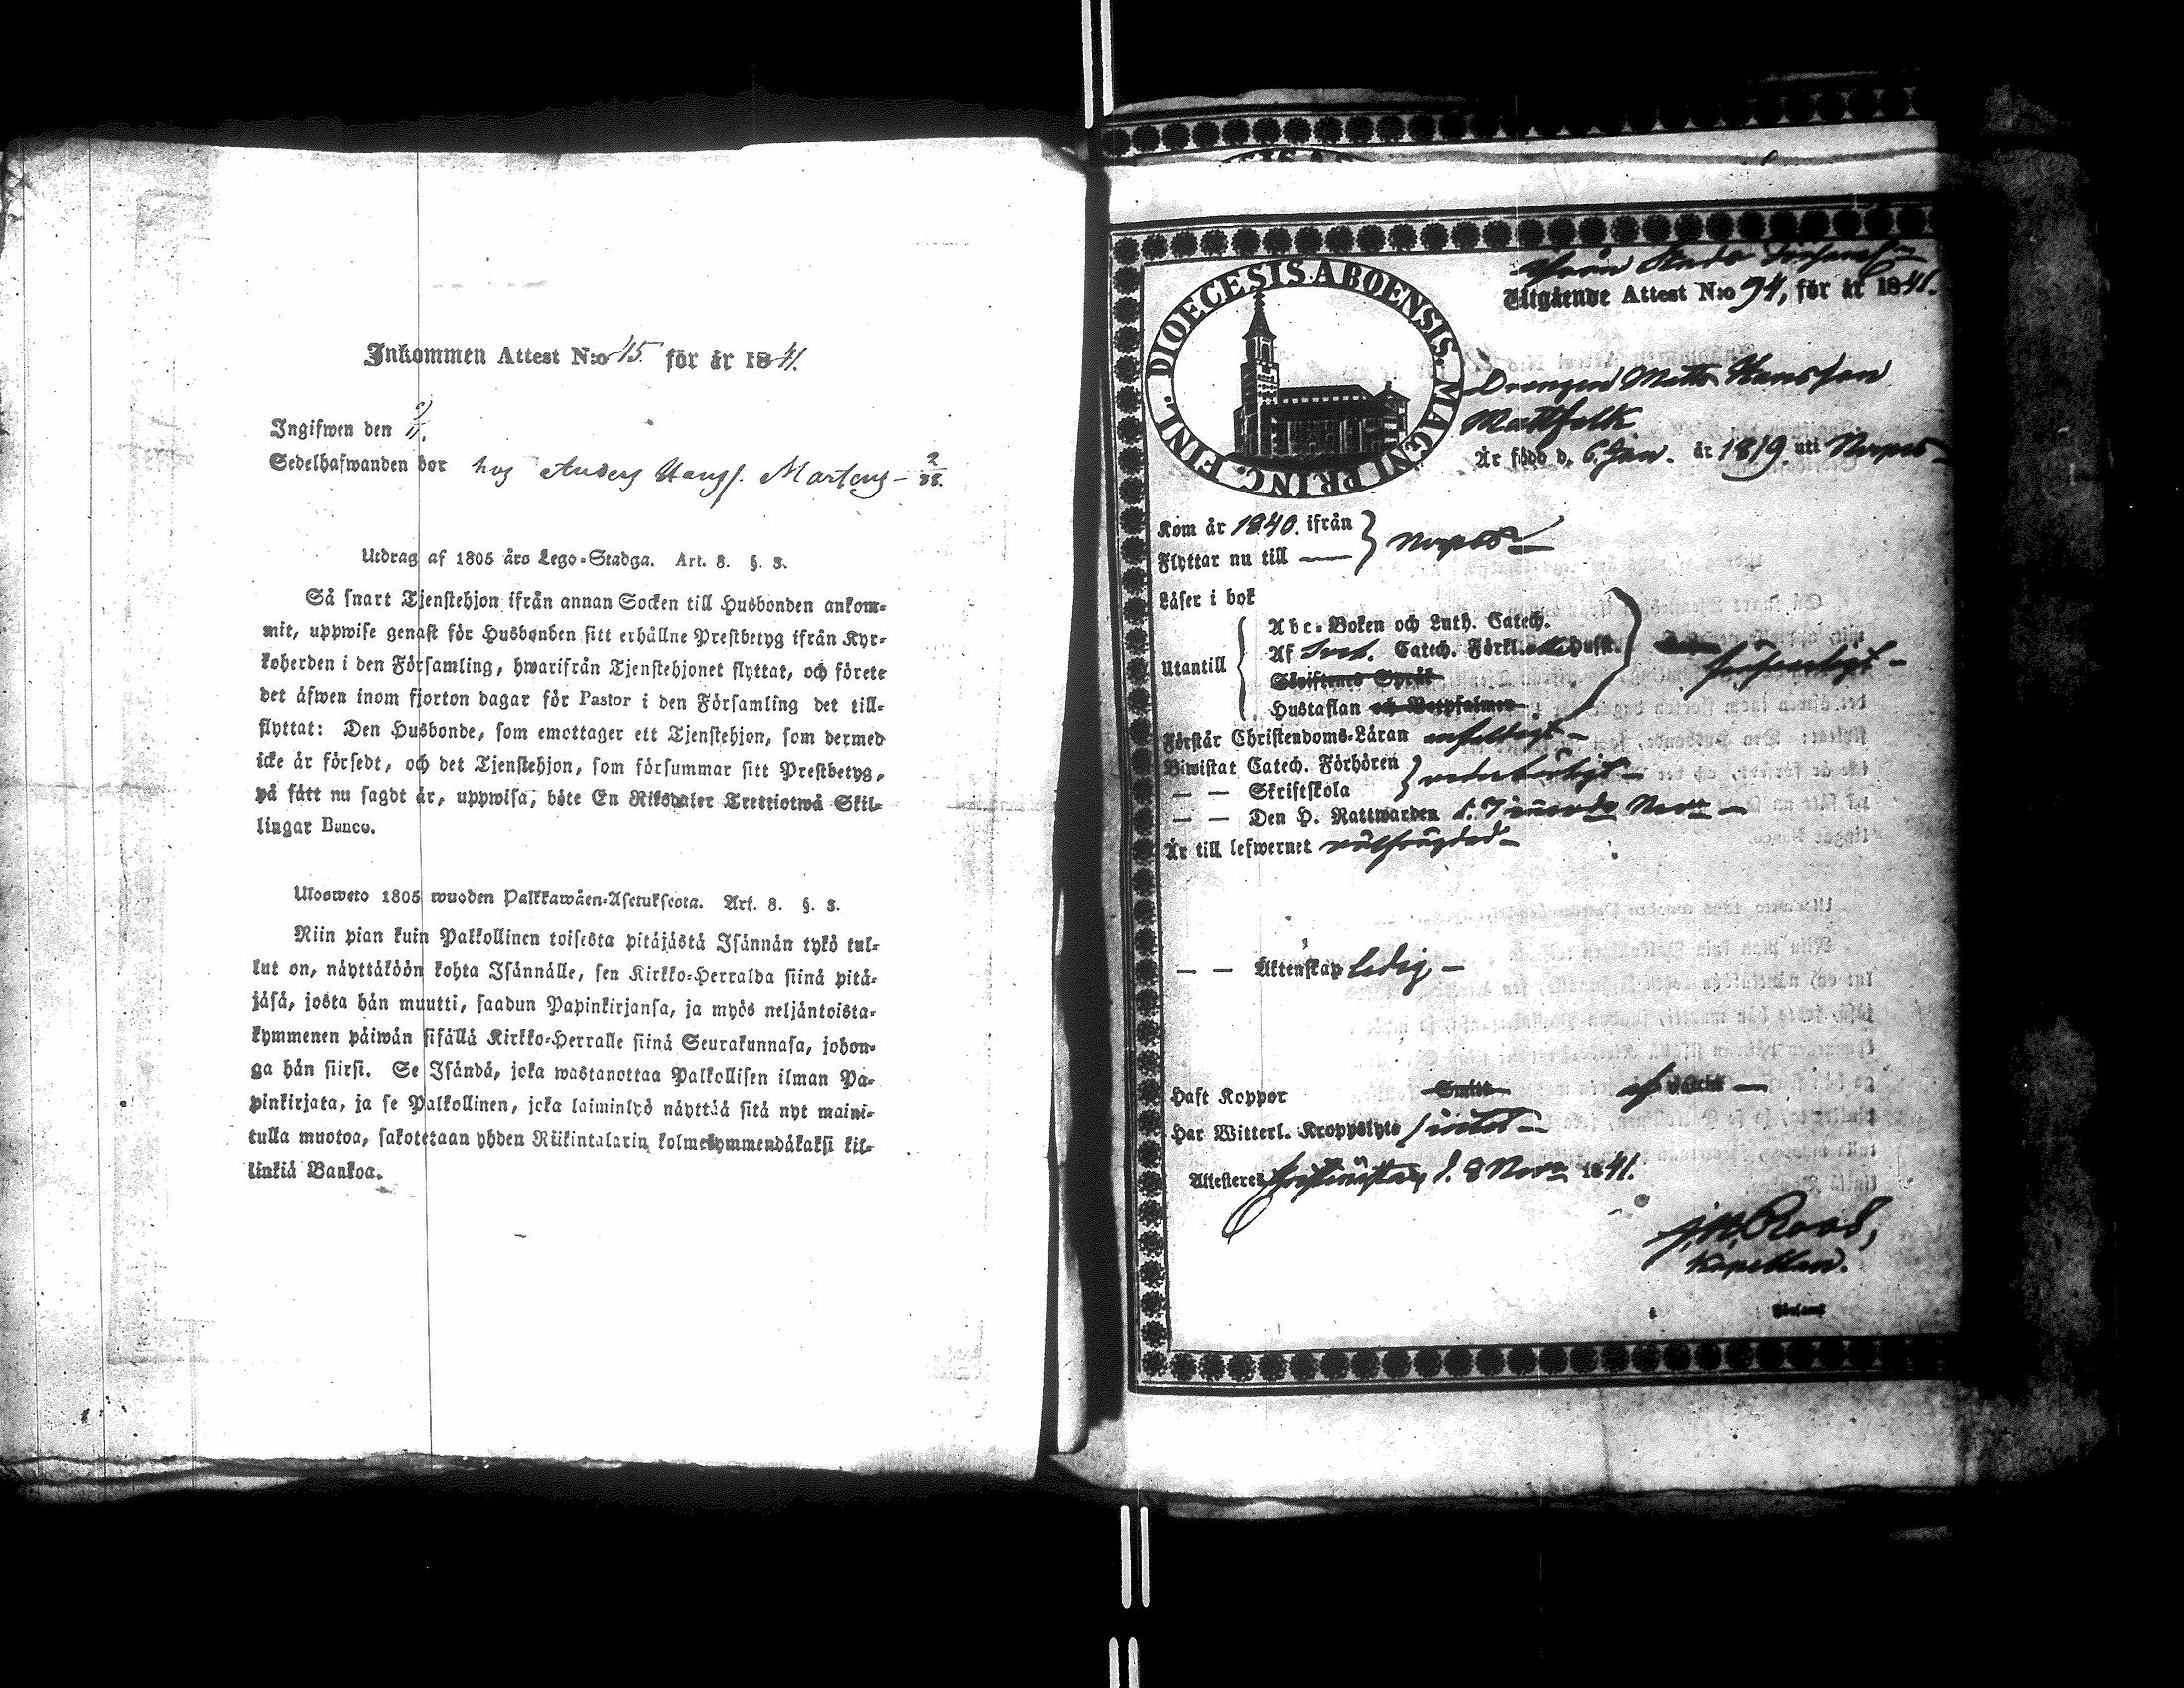 Inkommen Attest N:o 45 för år 1841.
Ingifwen den
Sedelhafwanden bor hos Anders Hanss. Martens –
Utdrag af 1805 års Lego-Stadga. Art. 8. §. 3.
Så snart Tjenstehjon ifrån annan Socken till Husbonden ankom-
mit, uppwise genast för Husbonden sitt erhållne Prestbetyg ifrån Kyr-
koherden i den Församling, hwarifrån Tjenstehjonet flyttat, och förete
det äfwen inom fjorton dagar för Pastor i den Församling det till-
flyttat: Den Husbonde, som emottager ett Tjenstehjon, som dermed
icke är försedt, och det Tjenstehjon, som försummar sitt Prestbetyg,
på sätt nu sagdt är, uppwisa, böte En Riksdaler Trettiotwå Skil-
lingar Banco.
Ulosweto 1805 wuoden Palkkawäen-Asetuksesta. Art. 8. §. 3.
Niin pian kuin Palkollinen toisesta pitäjästä Isännän tykö tul-
lut on, näyttäköön kohta Isännälle, sen Kirkko-Herralda siinä pitä-
jäsä, josta hän muutti, saadun Papinkirjansa, ja myös neljäntoista-
kymmenen päiwän sisällä Kirkko-Herralle siinä Seurakunnasa, johon-
ga hän siirsi. Se Isändä, joka wastanottaa Palkollisen ilman Pa-
pinkirjata, ja se Palkollinen, joka laiminlyö näyttää sitä nyt maini-
tulla muotoa, sakotetaan yhden Riikintalarin kolmekymmendäkaksi kil-
linkiä Bankoa.
DIOECESIS ABOENSIS. MAGNI PRINC. FINL.
Utgående Attest N:o 94, för år 1841.
Drengen Matts Hansson
Mattfolk
Är född d. 6 Jan. år 1819 uti Nerpes –
Kom år 1840. ifrån
Flyttar nu till — Nerpes
Läser i bok
Abc-Boken och Luth. Catech.
utantill Af Sved. Catech. Förkl.
Skriftenes Språk
Hustaflan och Botpsalmer
Förstår Christendoms-Läran enfaldigt –
Biwistat Catech. Förhören
— — Skriftskola
— — Den H. Nattwarden
Är till lefwernet välfrägdad –
— — Äktenskap ledig –
Haft Koppor
Har Witterl. Kroppslyte
Attesteres d. 8 Nov. 1841.
Kapellan.